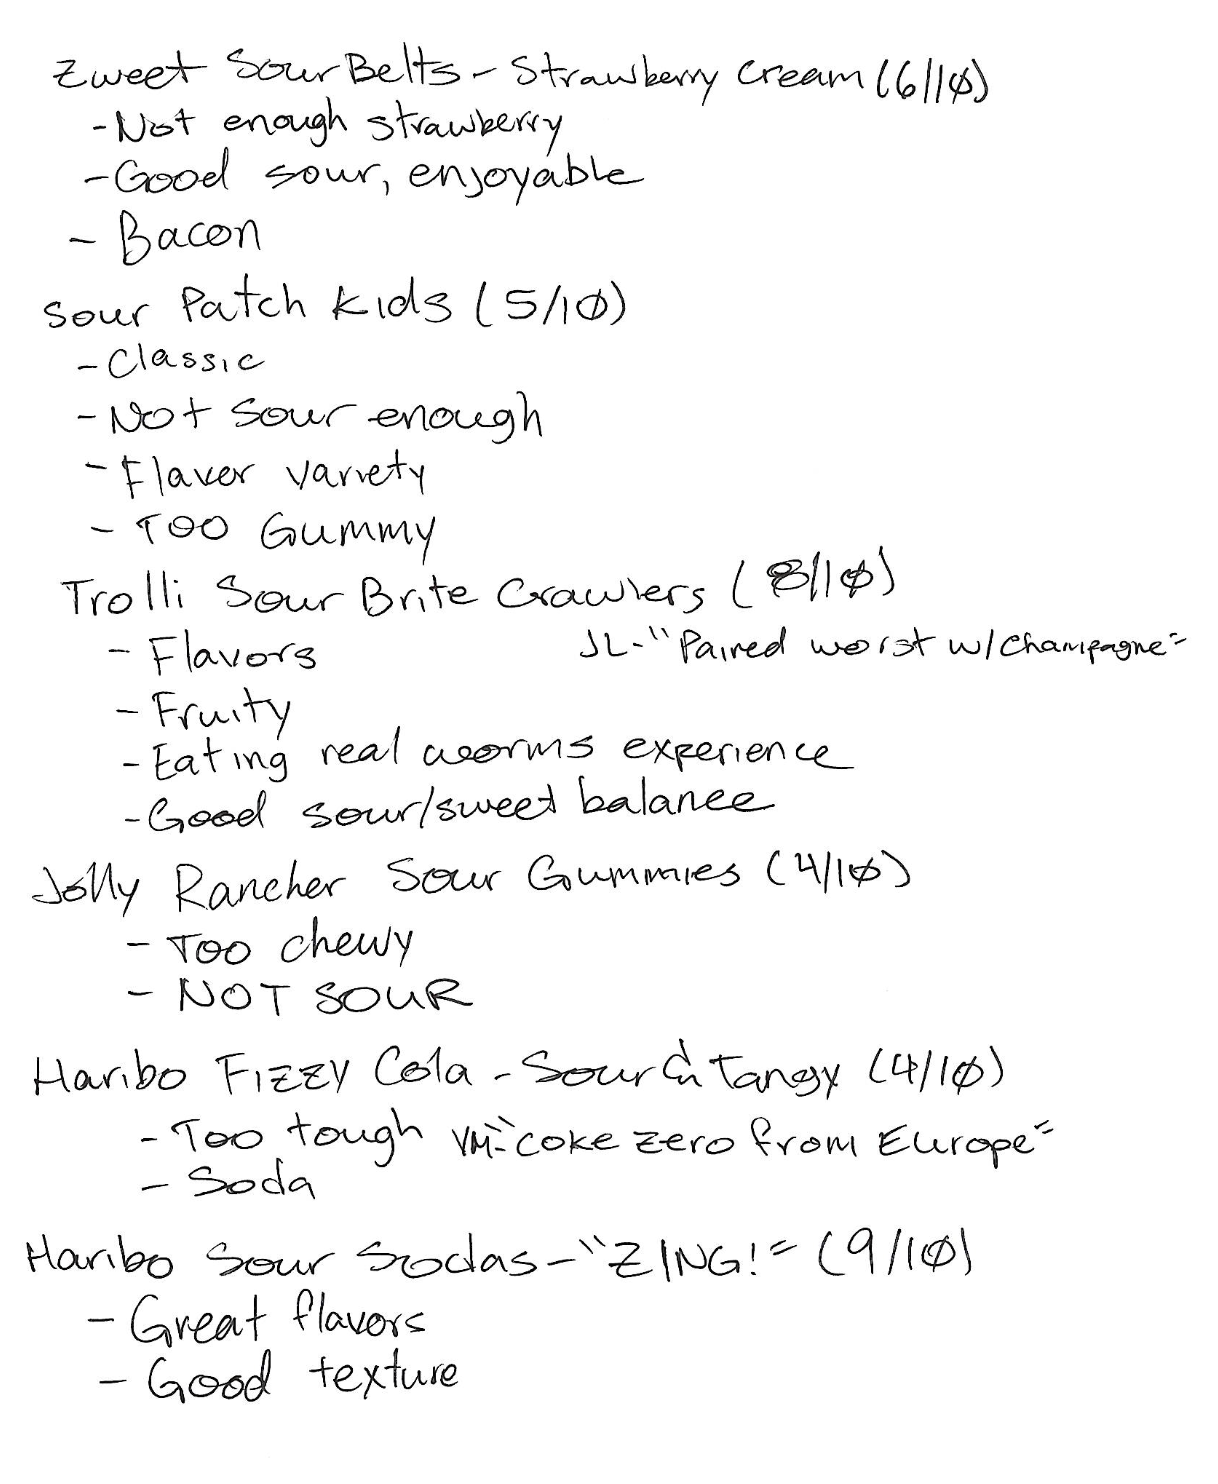 Zweet Sour Belts - Strawberry Cream (6/10)
- Not enough strawberry
- Good sour, enjoyable
- Bacon
Sour Patch Kids (5/10)
- Classic
- Not sour enough
- Flavor variety
- Too Gummy
Trolli Sour Brite Crawlers (8/10)
- Flavors JL - "Paired worst w/ Champagne"
- Fruity
- Eating real worms experience
- Good sour/sweet balance
Jolly Rancher Sour Gummies (4/10)
- Too chewy
- NOT SOUR
Haribo Fizzy Cola - Sour & Tangy (4/10)
- Too tough VM - "Coke Zero from Europe"
- Soda
Haribo Sour Sodas - "ZING!" (9/10)
- Great flavors
- Good texture